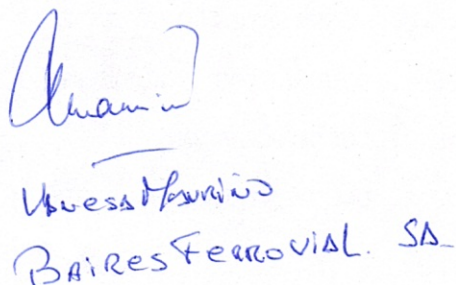 Vanesa Mauriño
Baires Ferrovial. SA